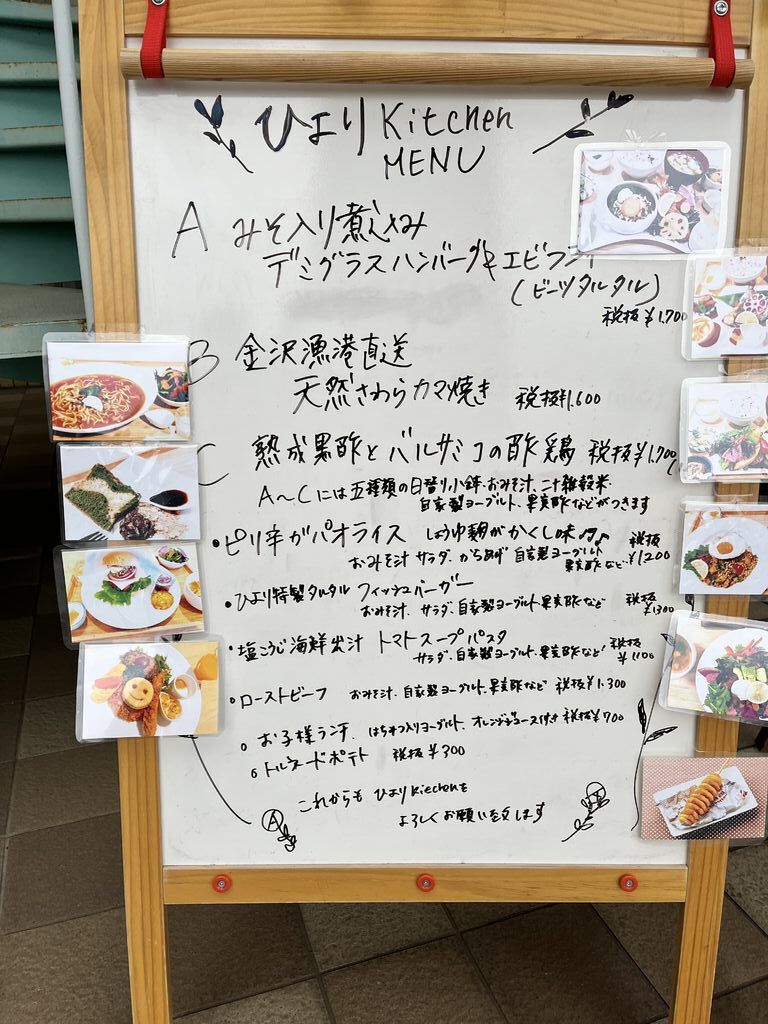 ひより Kitchen
MENU
A みそ入り煮込み
デミグラスハンバーグ&エビフライ
(ビーツタルタル)
税抜¥1,700
B 金沢漁港直送
天然さわらカマ焼き 税抜¥1,600
C 熟成黒酢とバルサミコの酢鶏 税抜¥1,700
A〜Cには五種類の日替り小鉢、おみそ汁、二十雑穀米、
自家製ヨーグルト、果実酢などがつきます
・ピリ辛ガパオライス しょうゆ麹がかくし味♪♪ 税抜
おみそ汁 サラダ、からあげ 自家製ヨーグルト ¥1200
果実酢など
・ひより特製タルタル フィッシュバーガー 税抜
おみそ汁、サラダ、自家製ヨーグルト 果実酢など ¥1300
・塩こうじ海鮮出汁 トマトスープパスタ 税抜
サラダ、自家製ヨーグルト、果実酢など ¥1100
・ローストビーフ おみそ汁、自家製ヨーグルト、果実酢など 税抜¥1,300
○ お子様ランチ、はちみつ入りヨーグルト、オレンジジュース付き 税抜¥700
○ トルネードポテト 税抜¥300
これからも ひより Kiechenを
よろしくお願い致します
A